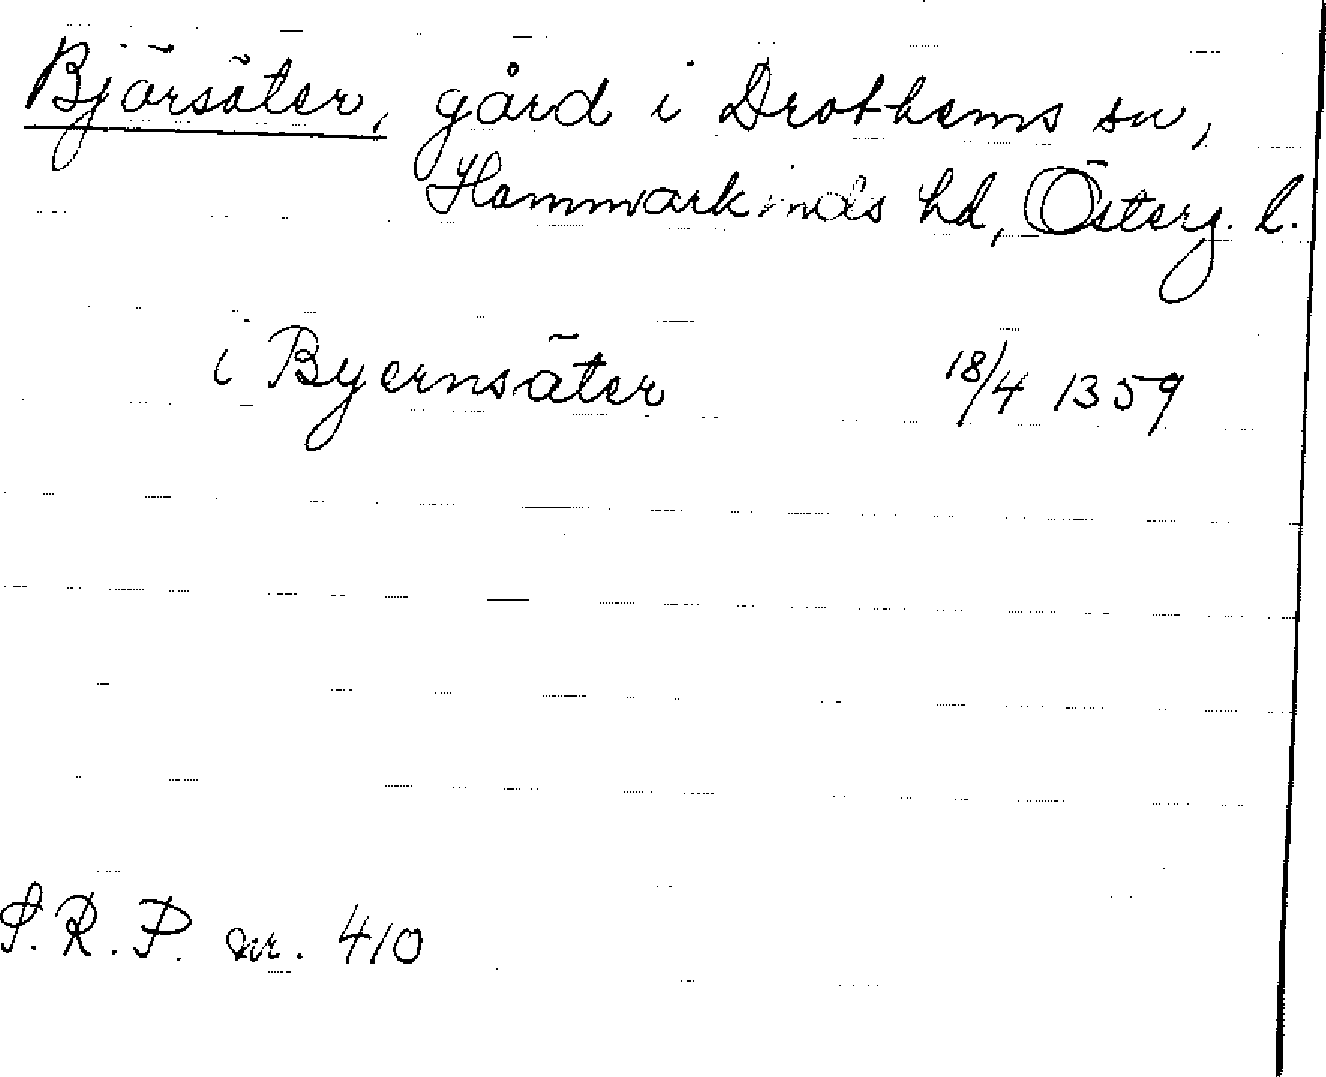 Bjärsäter, gård i Drothems sn,
Hammarkinds hd, Österg. l.
i Byernsäter 18/4 1359
S.R.P. nr. 410